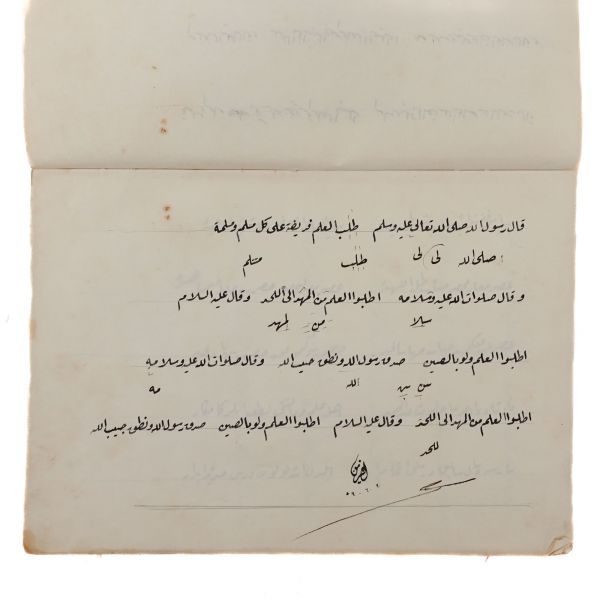 قال رسول الله صلى الله تعالى عليه وسلم طلب العلم فريضة على كل مسلم ومسلمة
صلى الله لى لى طلب مسلم
وقال صلوات الله عليه وسلامه اطلبوا العلم من المهد الى اللحد وقال عليه السلام
سلا من لمهد
اطلبوا العلم ولو بالصين صدق رسول الله ونطق حبيب الله وقال صلوات الله عليه وسلامه
الله مه
اطلبوا العلم من المهد الى اللحد وقال عليه السلام اطلبوا العلم ولو بالصين صدق رسول الله ونطق حبيب الله
للحد